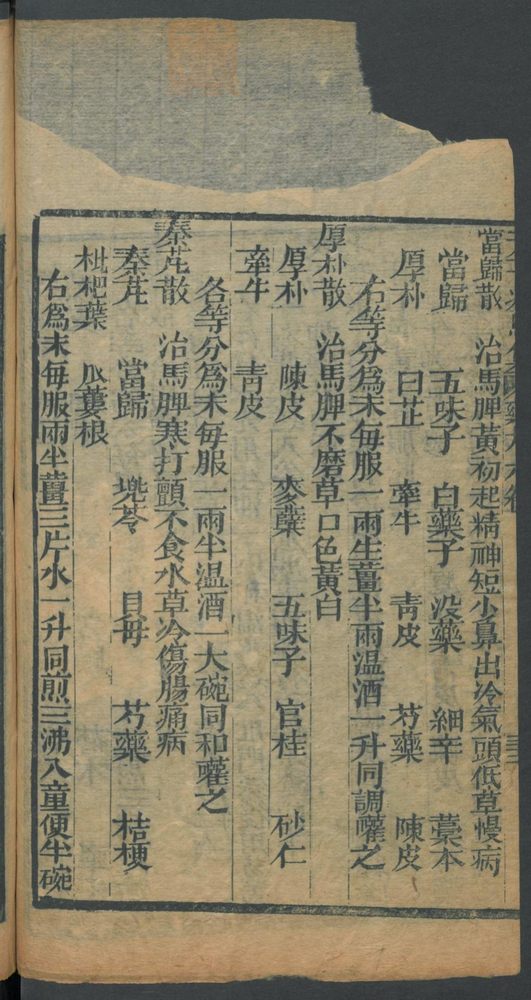 當歸散　治馬脾黃初起精神短少鼻出冷氣頭低草慢病
當歸　五味子　白藥子　没藥　細辛　藁本
厚朴　白芷　牽牛　靑皮　芍藥　陳皮
右等分爲末每服一兩生薑半兩温酒一升同調嚾之
厚朴散　治馬脾不磨草口色黃白
厚朴　陳皮　麥蘖　五味子　官桂　砂仁
牽牛　靑皮
各等分爲末每服一兩半温酒一大碗同和嚾之
秦艽散　治馬脾寒打顫不食水草冷傷腸痛病
秦艽　當歸　兠苓　貝母　芍藥　桔梗
枇杷葉　瓜蔞根
右爲末每服兩半薑三片水一升同煎三沸入童便半碗